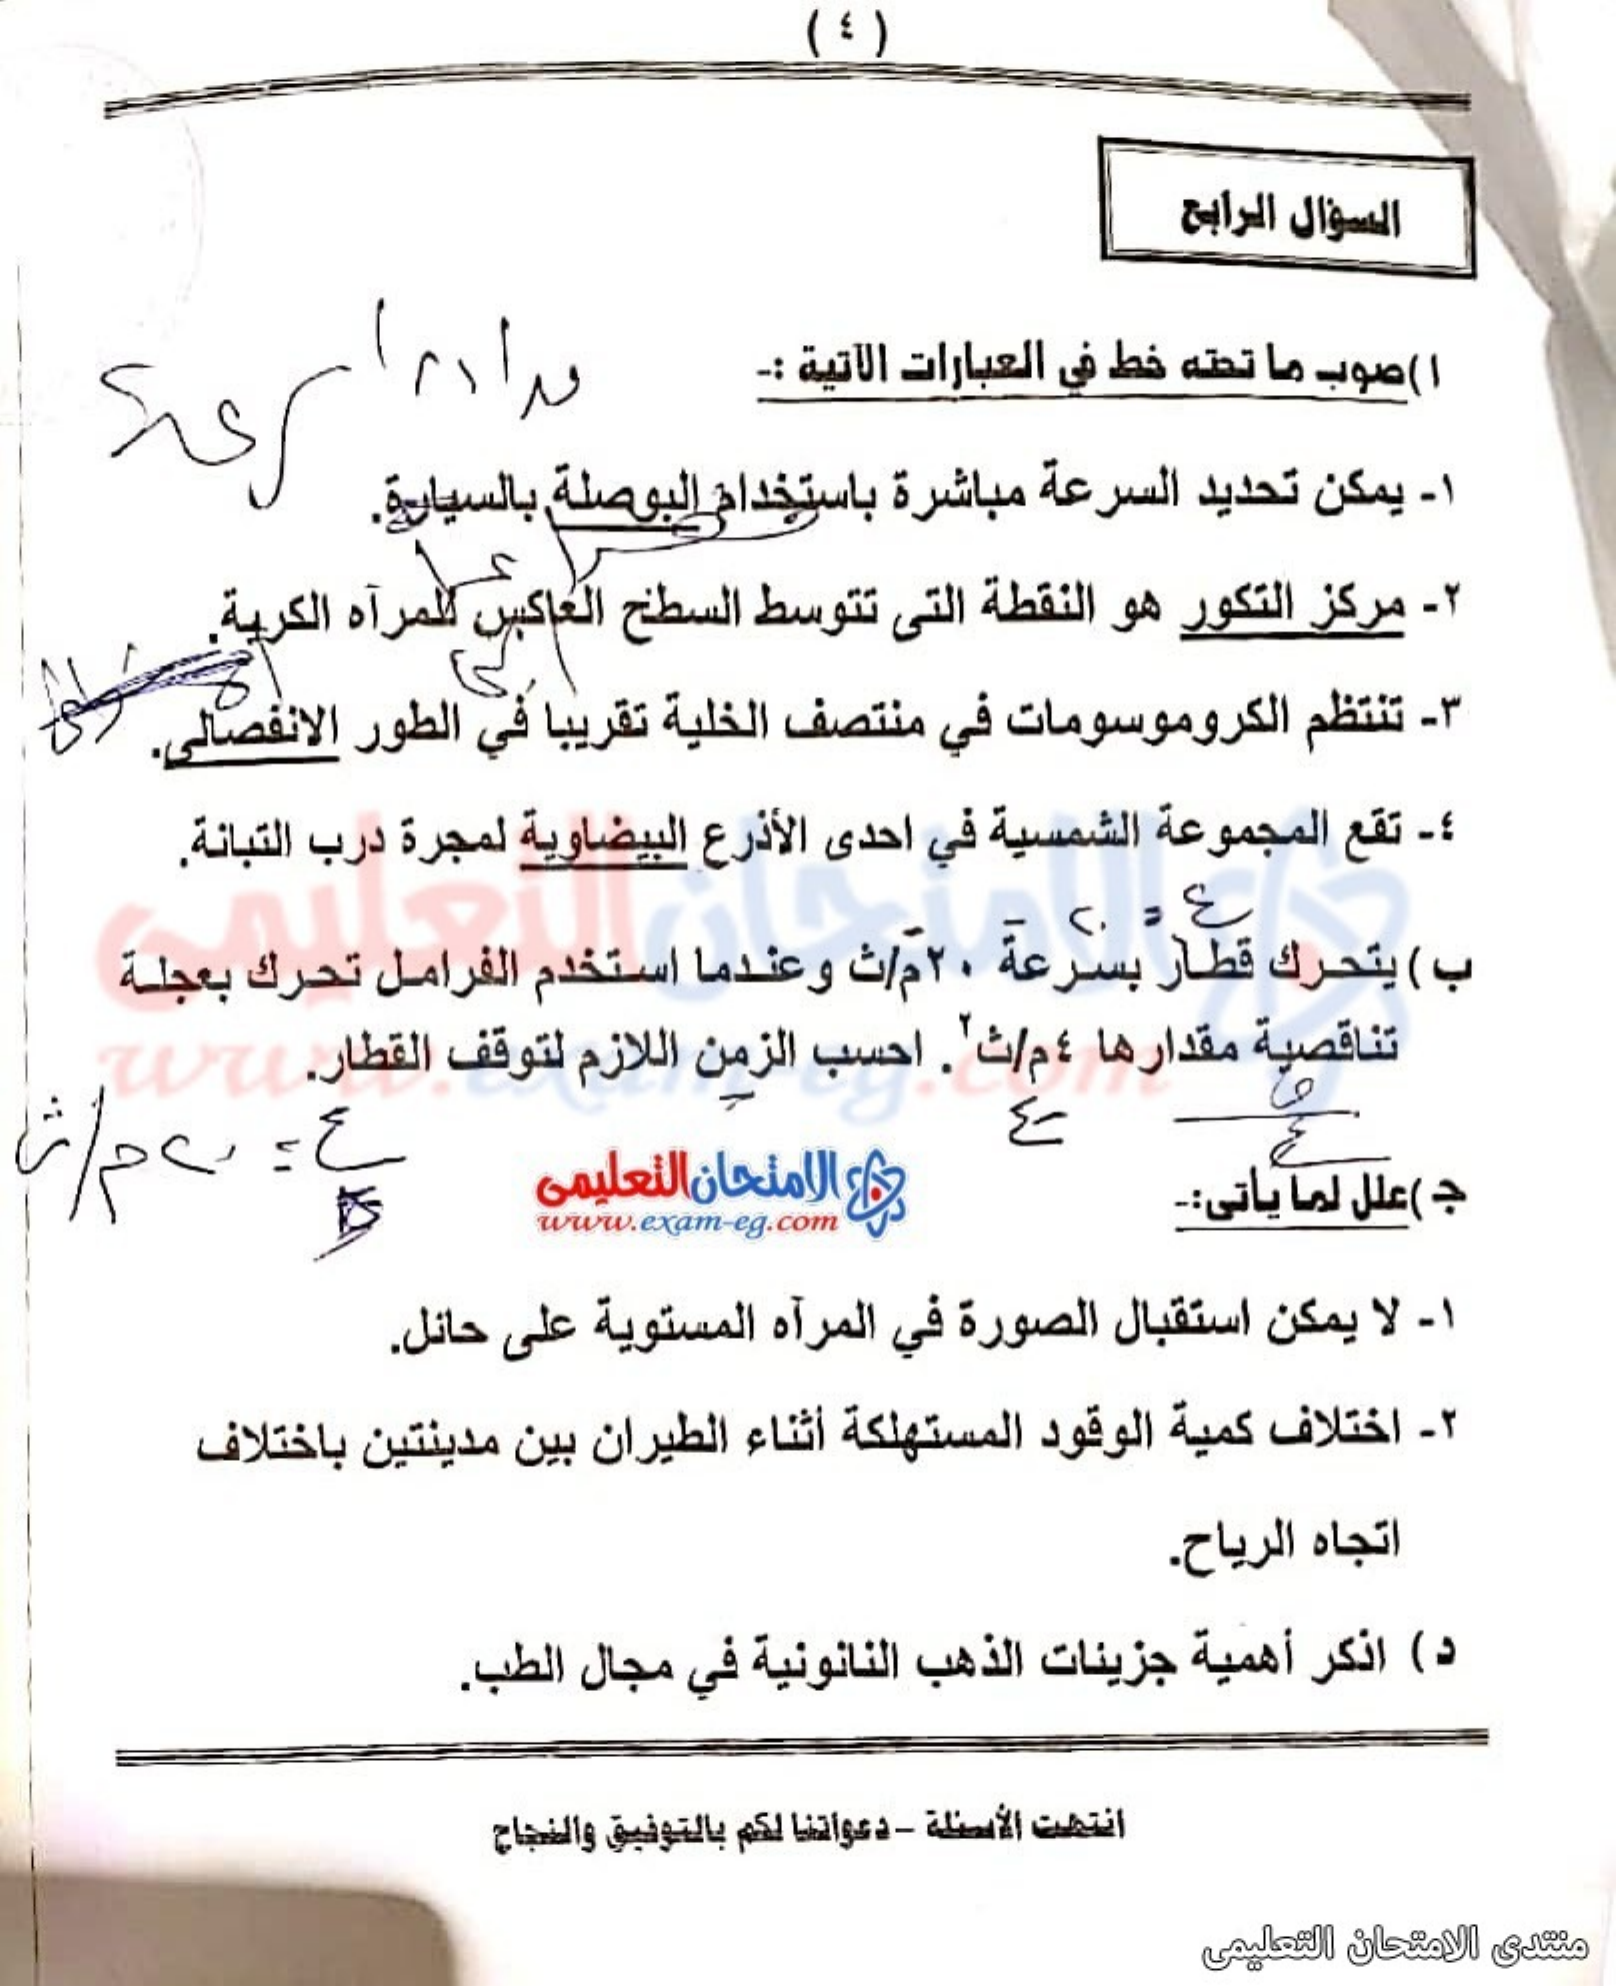 ( ٤ )
السؤال الرابع
١) صوب ما تحته خط في العبارات الآتية :-
١- يمكن تحديد السرعة مباشرة باستخدام البوصلة بالسيارة.
٢- مركز التكور هو النقطة التى تتوسط السطح العاكس للمرآه الكرية.
٣- تنتظم الكروموسومات في منتصف الخلية تقريبا في الطور الانفصالى.
٤- تقع المجموعة الشمسية في احدى الأذرع البيضاوية لمجرة درب التبانة.
ع = ٢٠
ب) يتحرك قطار بسرعة ٢٠م/ث وعندما استخدم الفرامل تحرك بعجلة
تناقصية مقدارها ٤م/ث٢. احسب الزمن اللازم لتوقف القطار.
ع = ٢٠ م/ث
ج) علل لما يأتى:-
الامتحان التعليمى
www.exam-eg.com
١- لا يمكن استقبال الصورة في المرآه المستوية على حائل.
٢- اختلاف كمية الوقود المستهلكة أثناء الطيران بين مدينتين باختلاف
اتجاه الرياح.
د) اذكر أهمية جزيئات الذهب النانونية في مجال الطب.
انتهت الأسئلة – دعواتنا لكم بالتوفيق والنجاح
منتدى الامتحان التعليمى